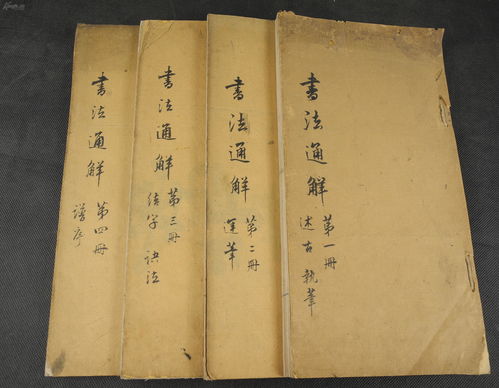 書法通解 第一冊
述古 執筆
書法通解 第二冊
運筆
書法通解 第三冊
結字 訣法
書法通解 第四冊
譜序